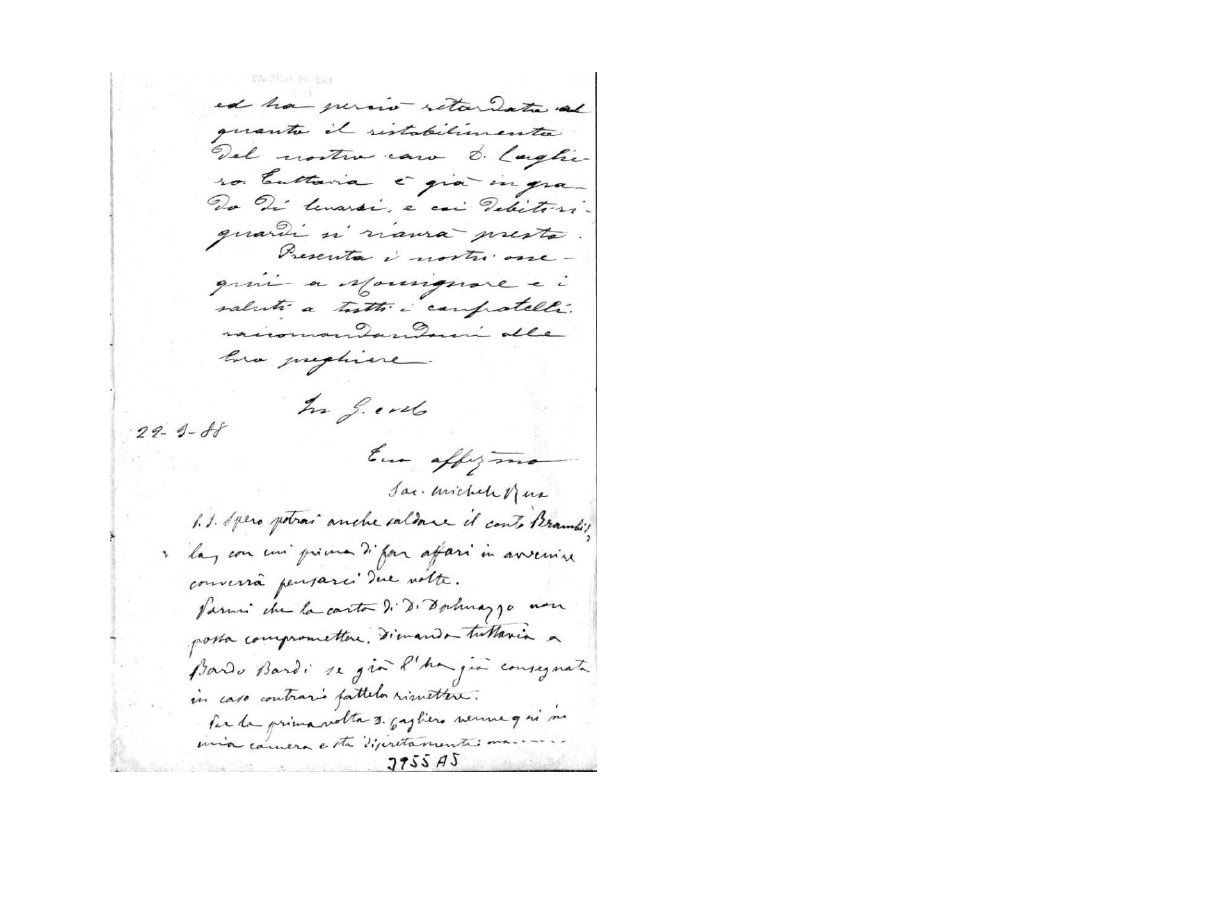 ed ha perciò retardato al
quanto il ristabilimento
del nostro caro D. Caglie-
ro. Tuttavia è già in gra-
do di levarsi, e coi debiti ri-
guardi si riavrà presto.
Presenta i nostri osse-
quii a Monsignore e i
saluti a tutti i confratelli
raccomandandomi alle
loro preghiere
In G. e
29-9-88
Tuo affez.mo
Sac. Michele Rua
P.S. Spero potrai anche saldare il conto Brambil,
la, con cui prima di far affari in avvenire
converrà pensarci due volte.
Parmi che la carta di D. non
possa compromettere. Dimanda tuttavia a
Bardo Bardi se già l'ha già consegnata
in caso contrario fattela rimettere.
Per la prima volta D. Cagliero venne qui in
mia camera e sta discretamente ma......
2955 A5